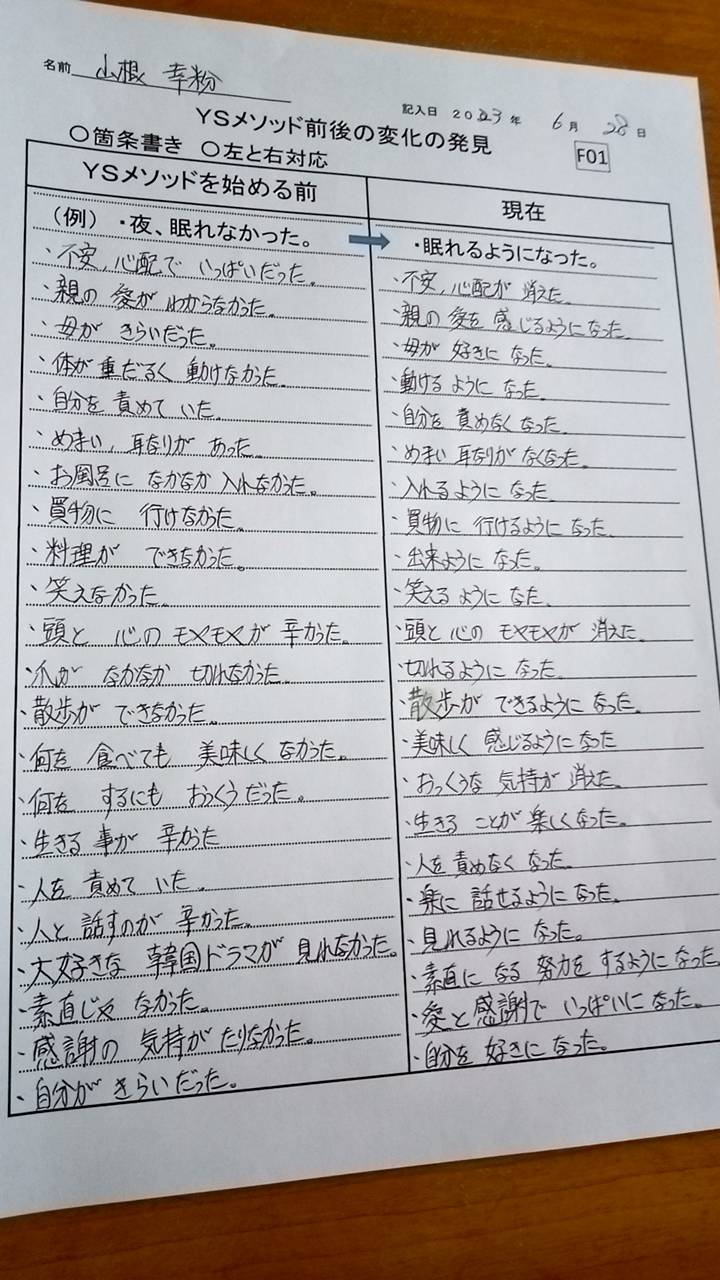 名前 山根 幸粉
記入日 2023年 6月 28日
YSメソッド前後の変化の発見
○箇条書き ○左と右対応
F01
YSメソッドを始める前 現在
（例）・夜、眠れなかった。 ・眠れるようになった。
・不安，心配で いっぱいだった。 ・不安，心配が 消えた。
・親の 愛が わからなかった。 ・親の 愛を 感じるようになった。
・母が きらいだった。 ・母が 好きに なった。
・体が 重だるく 動けなかった。 ・動ける ように なった。
・自分を 責めて いた。 ・自分を 責めなく なった。
・めまい，耳なりが あった。 ・めまい 耳なりが なくなった。
・お風呂に なかなか 入れなかった。 ・入れるように なった。
・買物に 行けなかった。 ・買物に 行けるように なった。
・料理が できなかった。 ・出来ように なった。
・笑えなかった。 ・笑える ように なた。
・頭と 心の モヤモヤが 辛かった。 ・頭と 心の モヤモヤが 消えた。
・爪が なかなか 切れなかった。 ・切れるように なった。
・散歩が できなかった。 ・散歩が できるように なった。
・何を 食べても 美味しく なかった。 ・美味しく 感じるように なった
・何を するにも おっくうだった。 ・おっくうな 気持が 消えた。
・生きる 事が 辛かった ・生きる ことが 楽しくなった。
・人を 責めて いた。 ・人を 責めなく なった。
・人と 話すのが 辛かった。 ・楽に 話せるように なった。
・大好きな 韓国ドラマが 見れなかった。 ・見れるように なった。
・素直じゃ なかった。 ・素直に なる 努力を するように なった
・感謝の 気持が たりなかった。 ・愛と 感謝で いっぱいに なった。
・自分が きらいだった。 ・自分を 好きに なった。